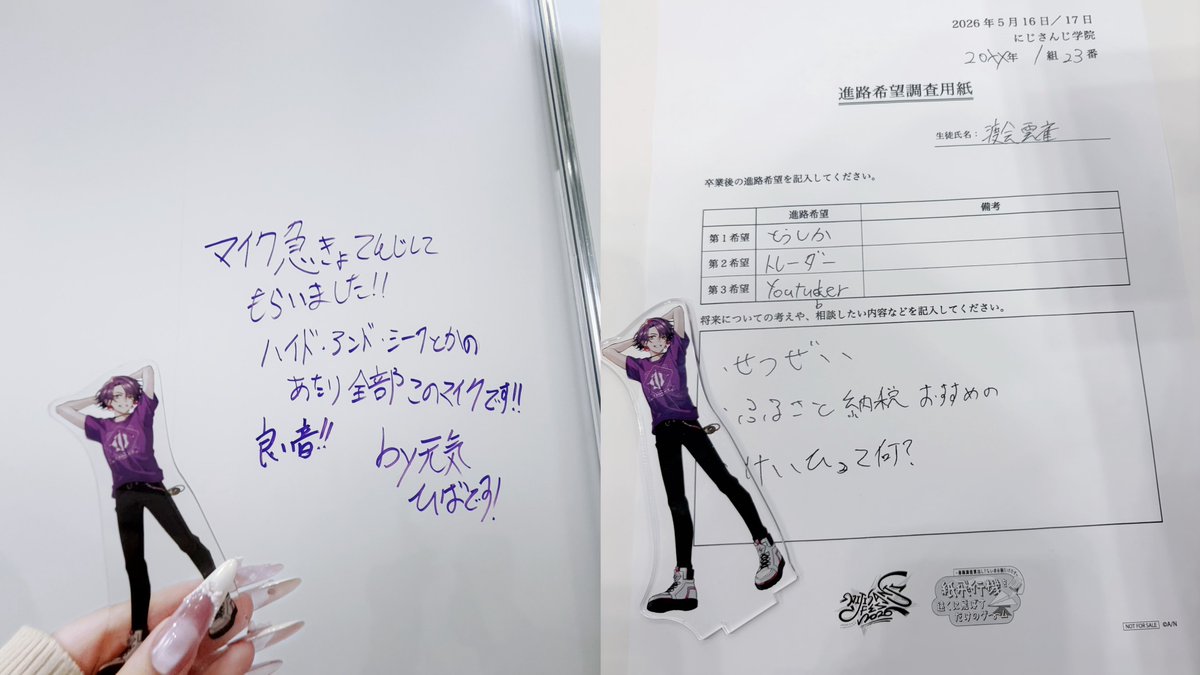 マイク急きょてんじして
もらいました!!
ハイド・アンド・シークとかの
あたり全部このマイクです!!
良い音!!
by元気
ひばです!
2026年5月16日/17日
にじさんじ学院
20XX年 1組23番
進路希望調査用紙
生徒氏名：渡会雲雀
卒業後の進路希望を記入してください。
進路希望 備考
第1希望 とうしか
第2希望 トレーダー
第3希望 Youtuber
b
将来についての考えや、相談したい内容などを記入してください。
・せつぜい
・ふるさと納税 おすすめの
・けいひって何?
紙飛行機を
遠くに飛ばす
だけのゲーム
NOT FOR SALE ©A/N